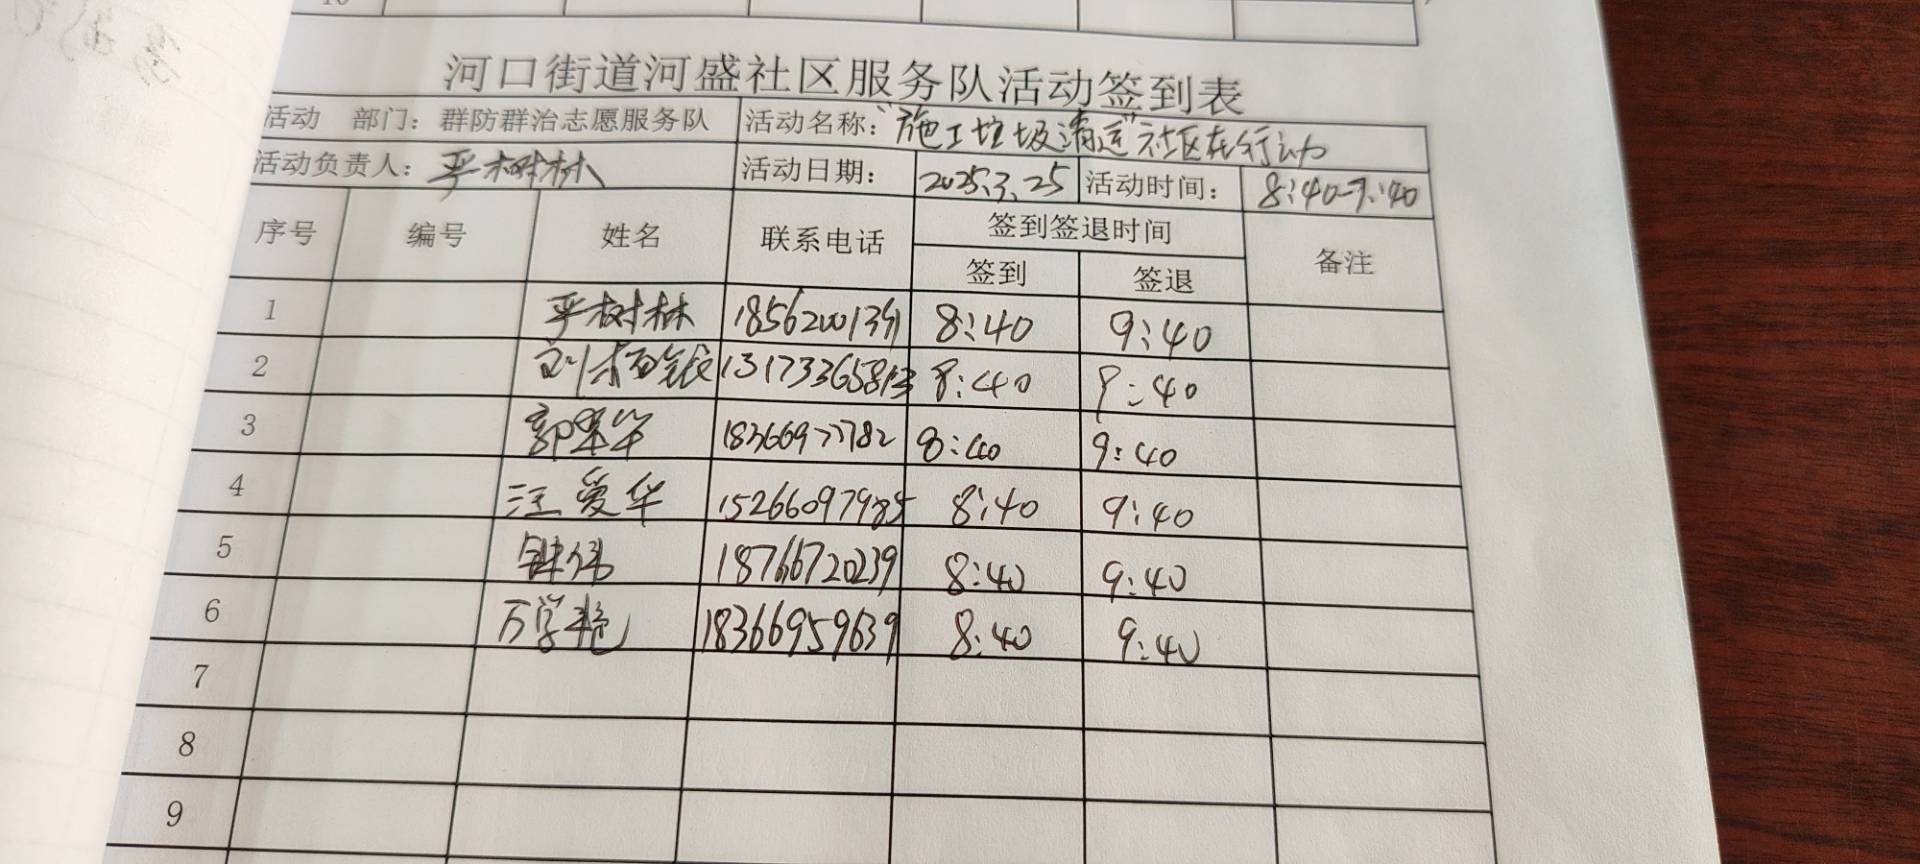 10
河口街道河盛社区服务队活动签到表
活动 部门：群防群治志愿服务队 活动名称：“施工垃圾清运”社区在行动
活动负责人：严树林 活动日期： 2025.3.25 活动时间： 8:40-9:40
序号 编号 姓名 联系电话 签到签退时间 备注
签到 签退
1 严树林 8:40 9:40
2 13173365813 8:40 9:40
3 18366977782 8:40 9:40
4 汪爱华 15266097985 8:40 9:40
5 钟伟 18766720239 8:40 9:40
6 万学艳 18366959639 8:40 9:40
7
8
9